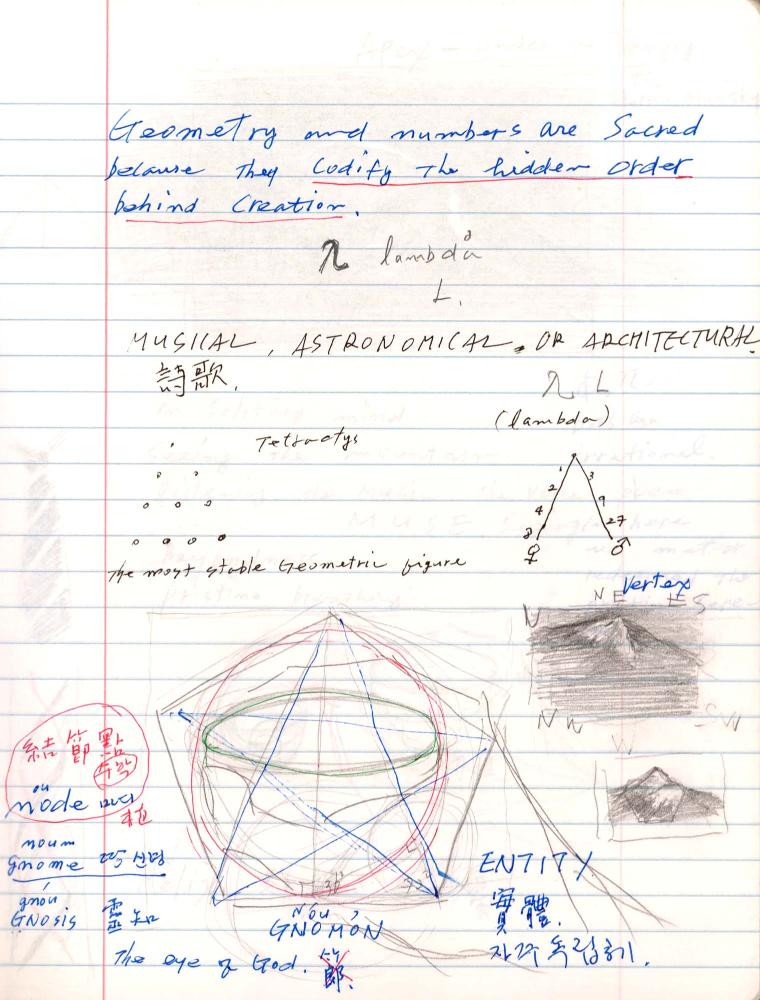 Geometry and numbers are Sacred
because They Codify The hidden Order
behind Creation.
λ lambda
L.
MUSICAL, ASTRONOMICAL. OR ARCHITECTURAL.
詩歌.
λ L
(lambda)
Tetractys
1 3
2 9
4 27
8
♀ ♂
The most stable Geometric figure
Vertex
N NE E S
NW SW
W
結節點
수학
node 마디
noum
Gnome 땅신령
gnou
GNOSIS 靈知
Nou
GNOMON
The eye of God. 節.
ENTITY.
實體.
자주독립하기.